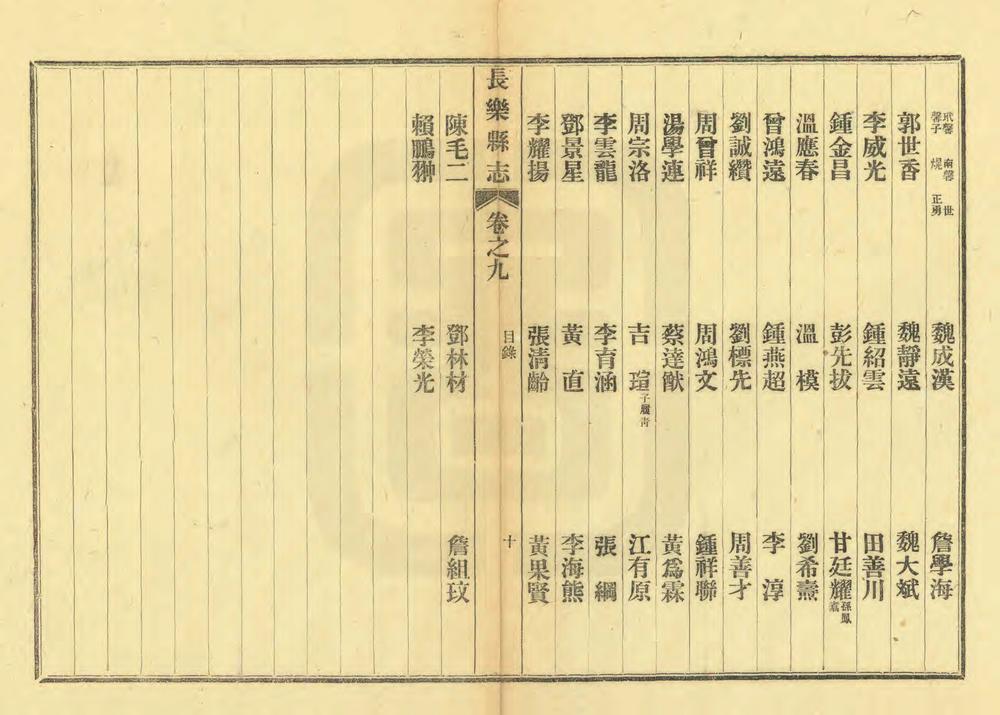 玳馨 南馨 世
馨子 焜 正勇
魏成漢
詹學海
郭世香
魏靜遠
魏大斌
李威光
鍾紹雲
田善川
鍾金昌
彭先拔
甘廷耀孫鳳
溫應春
溫模
劉希燾
曾鴻遠
鍾燕超
李淳
劉誠纘
劉標先
周善才
周曾祥
周鴻文
鍾祥聯
湯學連
蔡達猷
黃爲霖
周宗洛
吉瑄子履青
江有原
李雲龍
李育涵
張綱
鄧景星
黃直
李海熊
李耀揚
張清齡
黃果賢
長樂縣志 卷之九 目錄 十
陳毛二
鄧林材
詹組玟
賴鵬翀
李榮光